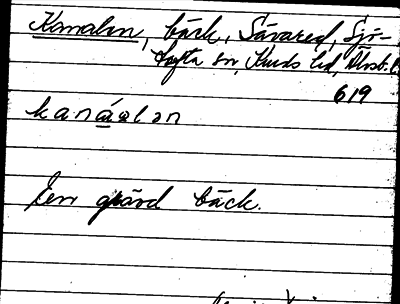 Kanalen, bäck, Sävared, Sjö-
tofta sn, Kinds hd, Älvsb. l.
619
kanáalən
En grävd bäck.